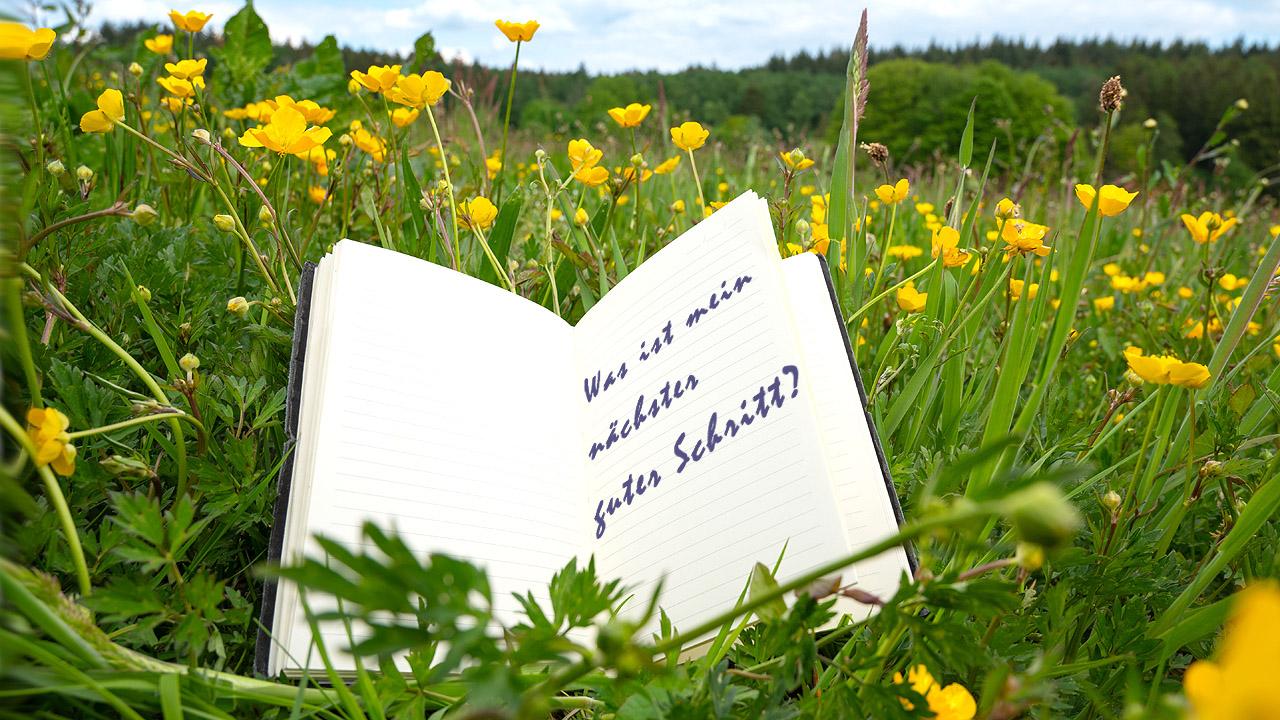 Was ist mein
nächster
guter Schritt?